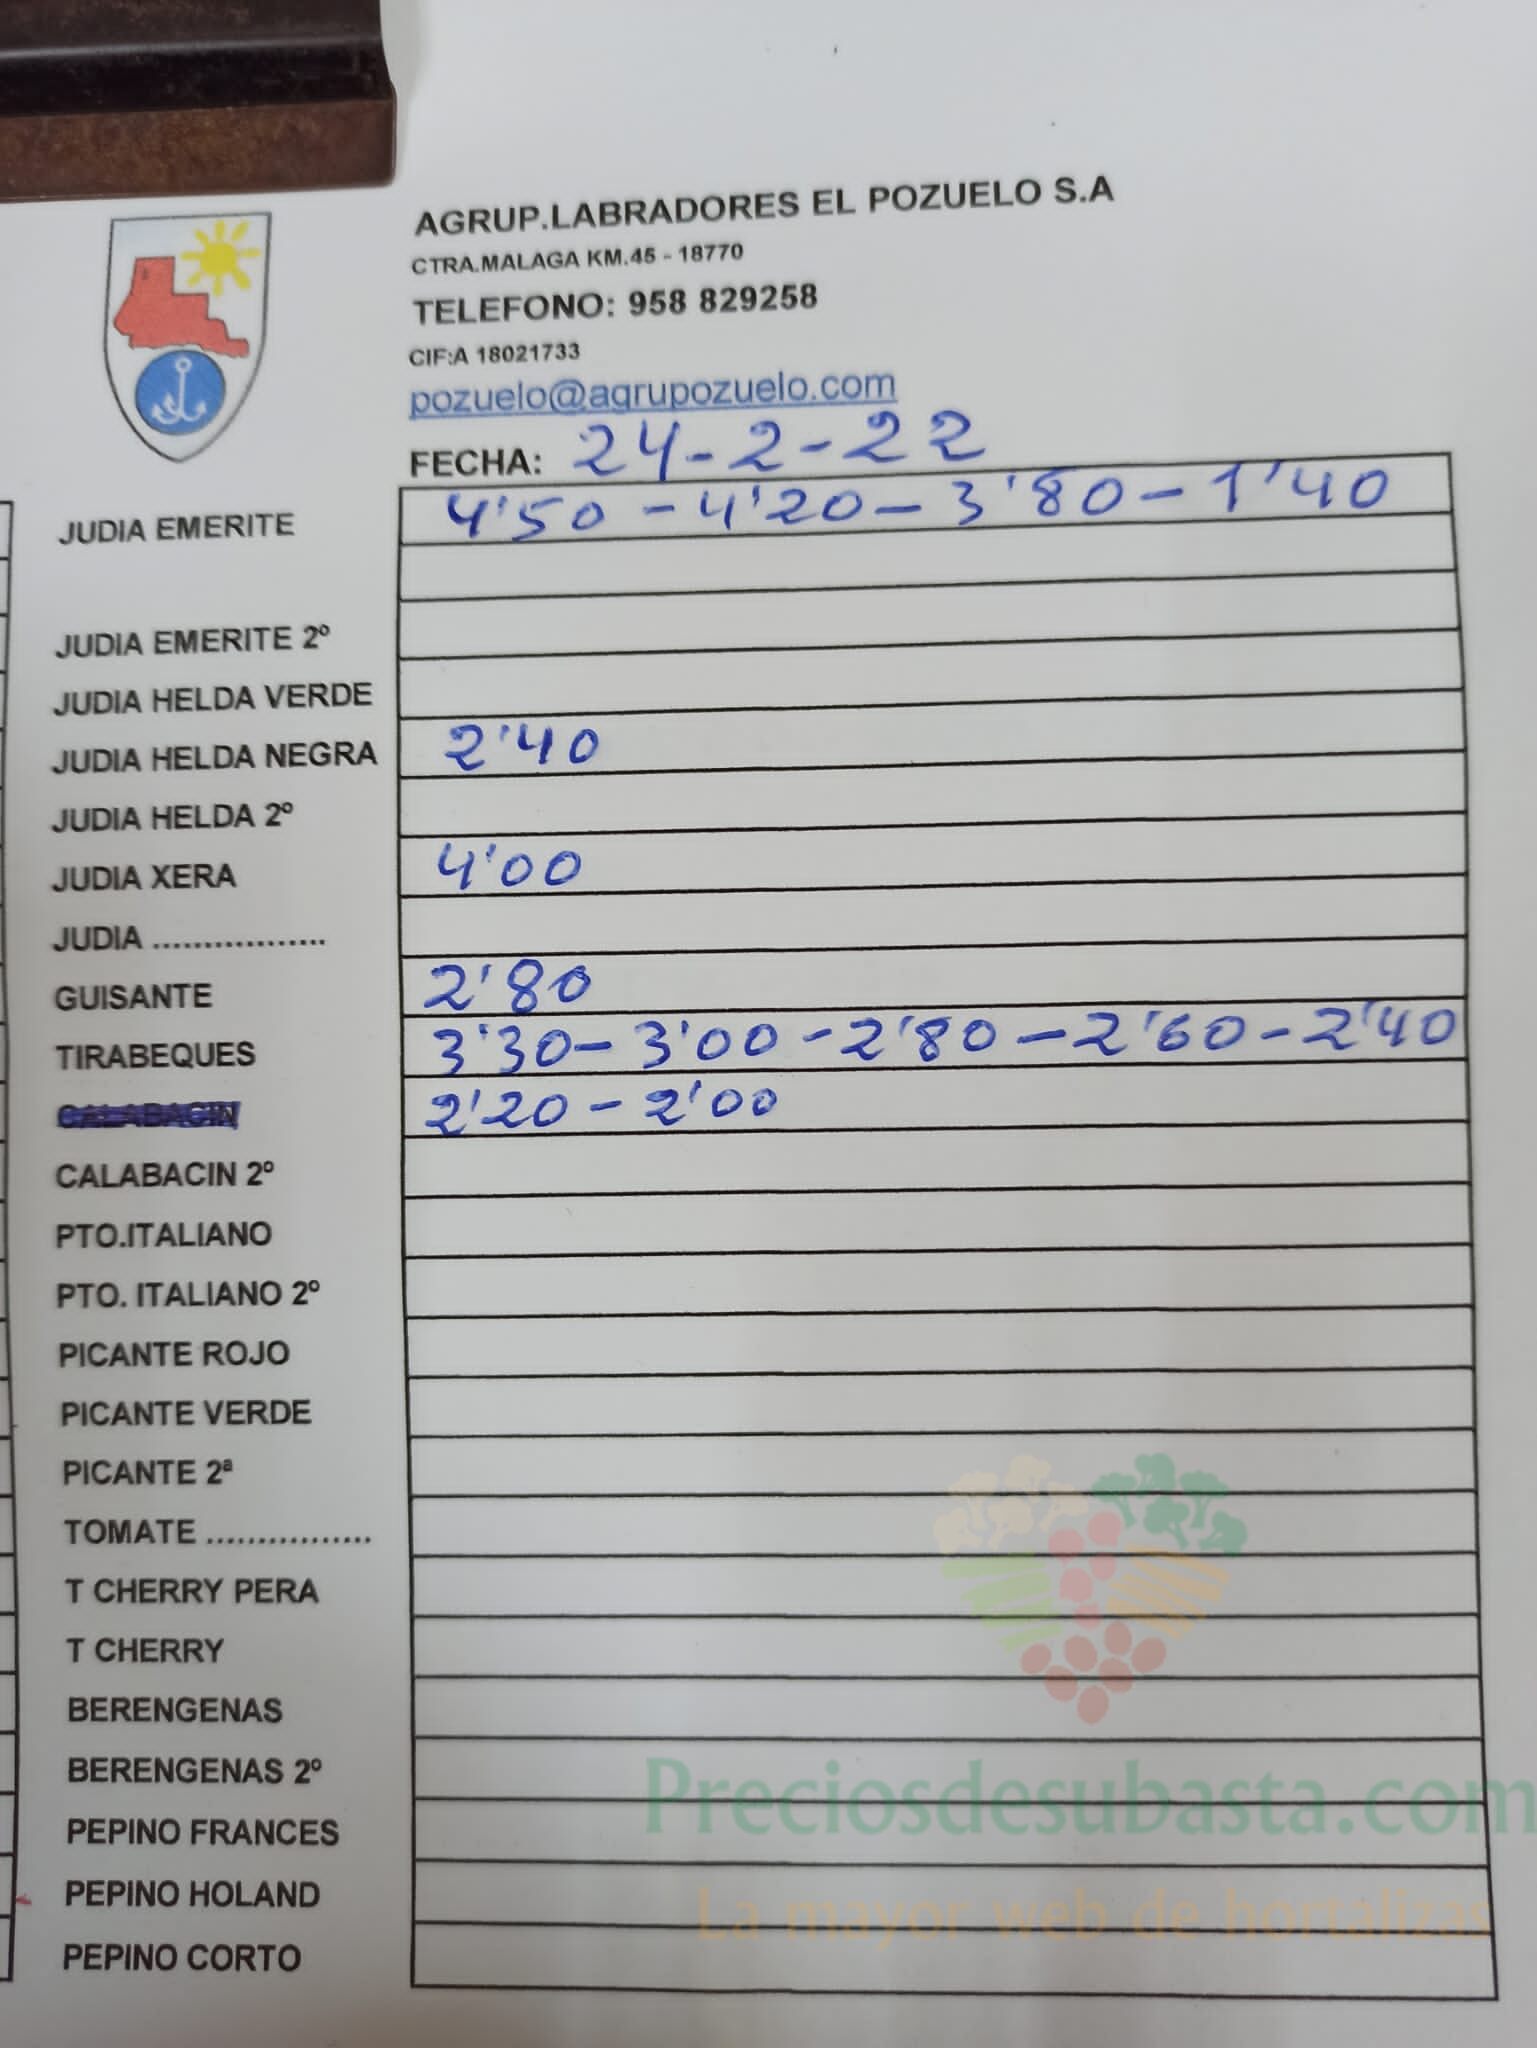 AGRUP.LABRADORES EL POZUELO S.A
CTRA.MALAGA KM.45 - 18770
TELEFONO: 958 829258
CIF:A 18021733
pozuelo@agrupozuelo.com
FECHA: 24-2-22
JUDIA EMERITE 4'50 - 4'20 - 3'80 - 1'40
JUDIA EMERITE 2º
JUDIA HELDA VERDE
JUDIA HELDA NEGRA 2'40
JUDIA HELDA 2º
JUDIA XERA 4'00
JUDIA .................
GUISANTE 2'80
TIRABEQUES 3'30 - 3'00 - 2'80 - 2'60 - 2'40
CALABACIN 2'20 - 2'00
CALABACIN 2º
PTO.ITALIANO
PTO. ITALIANO 2º
PICANTE ROJO
PICANTE VERDE
PICANTE 2ª
TOMATE ................
T CHERRY PERA
T CHERRY
BERENGENAS
BERENGENAS 2º
PEPINO FRANCES
PEPINO HOLAND
PEPINO CORTO
Preciosdesubasta.com
La mayor web de hortalizas